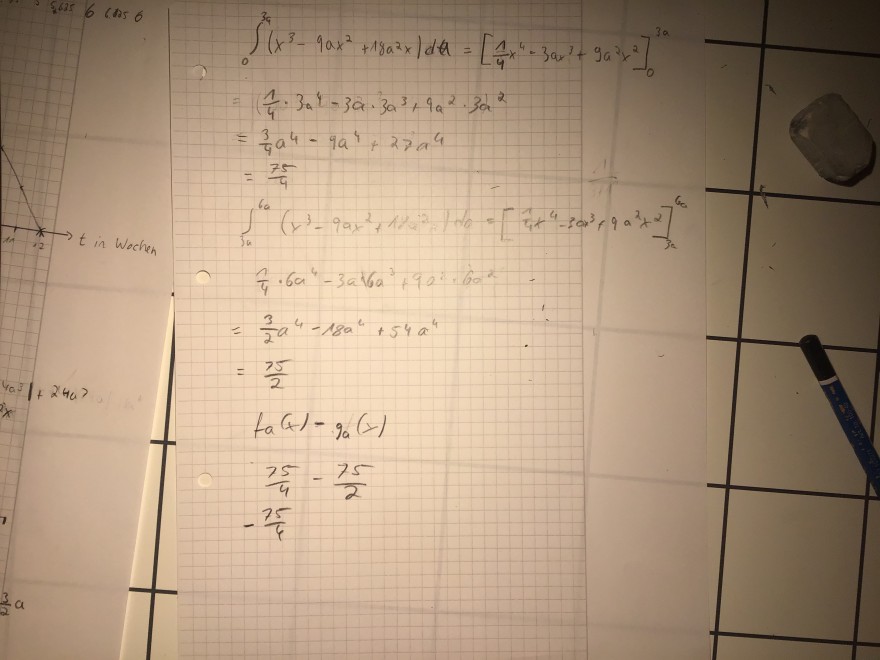 ∫₀³ᵃ (x³ - 9ax² + 18a²x) da = [1/4 x⁴ - 3ax³ + 9a²x²]₀³ᵃ
= (1/4 · 3a⁴ - 3a · 3a³ + 9a² · 3a²
= 3/4 a⁴ - 9a⁴ + 27a⁴
= 75/4
∫₃ₐ⁶ᵃ (x³ - 9ax² + 18a²x) da = [1/4 x⁴ - 3ax³ + 9a²x²]₃ₐ⁶ᵃ
1/4 · 6a⁴ - 3a · 6a³ + 9a² · 6a²
= 3/2 a⁴ - 18a⁴ + 54a⁴
= 75/2
fa(x) - ga(x)
75/4 - 75/2
- 75/4
t in Wochen
11 12
+ 24a³
3/2 a